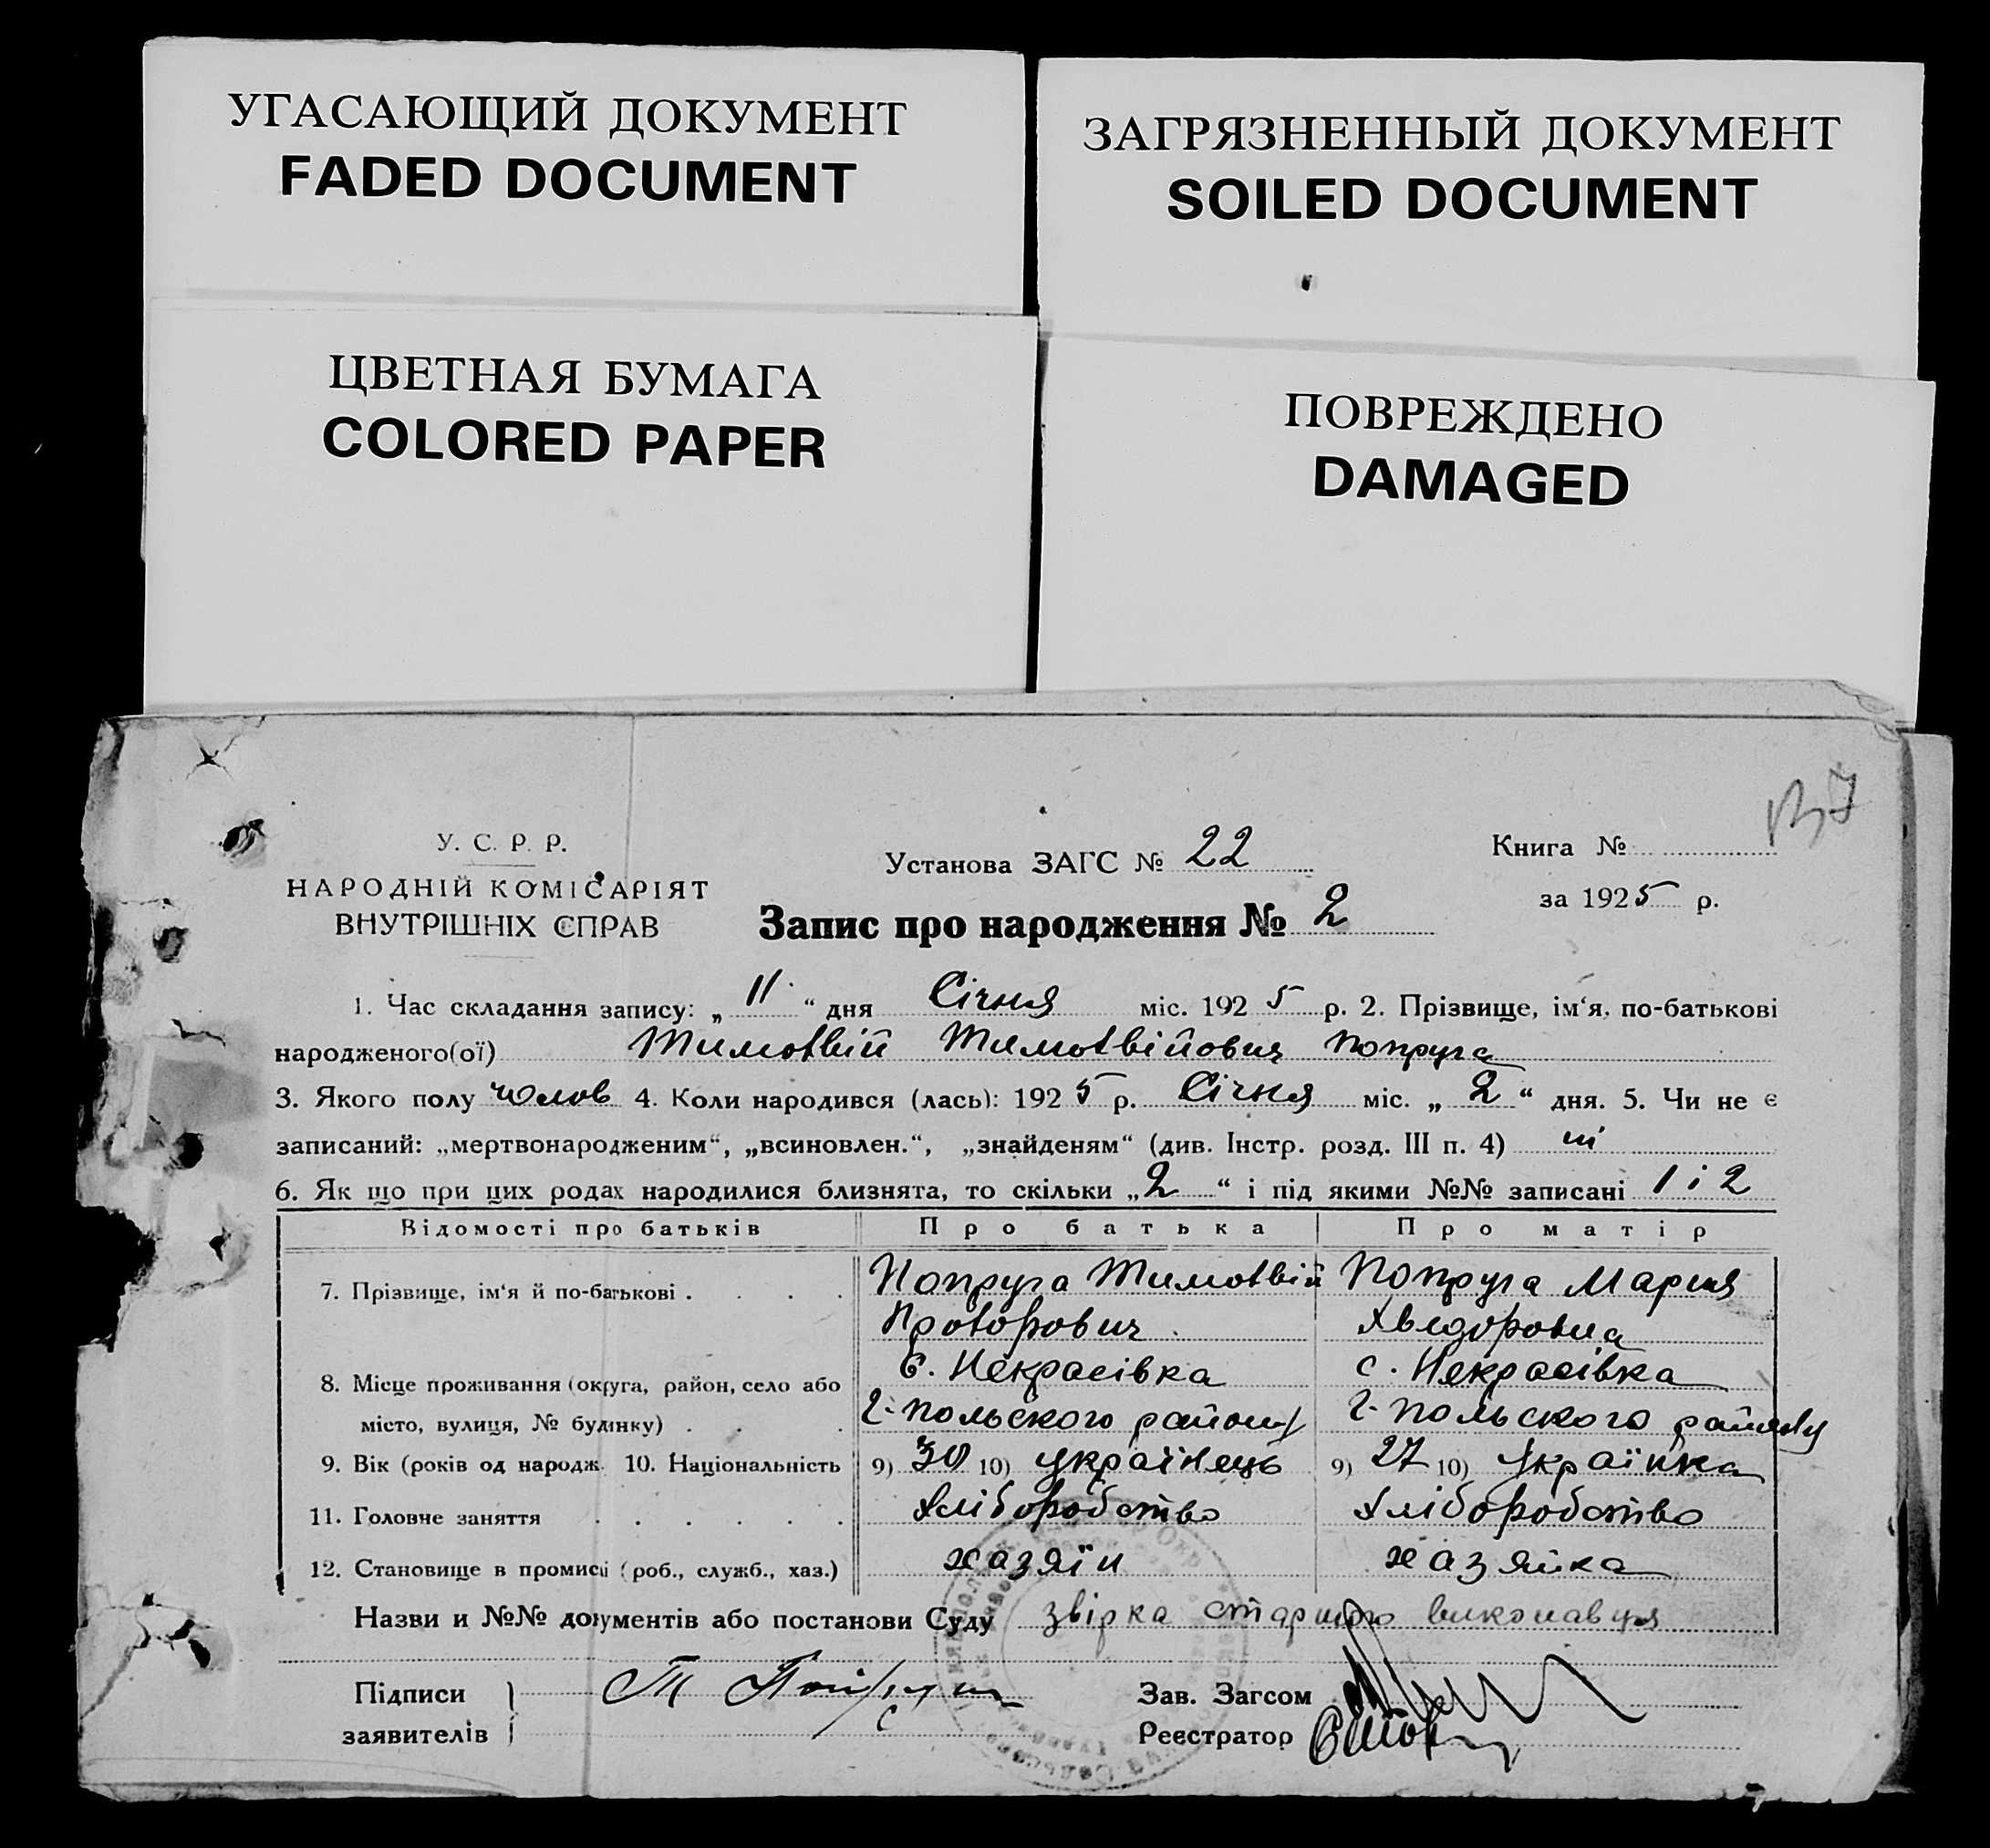 УГАСАЮЩИЙ ДОКУМЕНТ
FADED DOCUMENT
ЗАГРЯЗНЕННЫЙ ДОКУМЕНТ
SOILED DOCUMENT
ЦВЕТНАЯ БУМАГА
COLORED PAPER
ПОВРЕЖДЕНО
DAMAGED
У. С. Р. Р.
НАРОДНІЙ КОМІСАРІЯТ
ВНУТРІШНІХ СПРАВ
Установа ЗАГС № 22
Книга №
за 1925 р.
Запис про народження № 2
1. Час складання запису: „ 11 “ дня Січня міс. 1925 р. 2. Прізвище, ім‘я, по-батькові
народженого(ої) Тимотвій Тимотвійович Попруга
3. Якого полу чолов 4. Коли народився (лась): 1925 р. Січня міс. „ 2 “ дня. 5. Чи не є
записаний: „мертвонародженим“, „всиновлен.“, „знайденям“ (див. Інстр. розд. III п. 4) ні
6. Як що при цих родах народилися близнята, то скільки „2“ і під якими №№ записані 1 і 2
Відомості про батьків Про батька Про матір
7. Прізвище, ім‘я й по-батькові . . . . Попруга Тимотвій Попруга Мария
Хведоровна
8. Місце проживання (округа, район, село або с. Некрасівка с. Некрасівка
місто, вулиця, № будинку) . . . Г-польского району Г-польского району
9. Вік (років од народж. 10. Національність 9) 30 10) українець 9) 27 10) Українка
11. Головне заняття . . . . . . Хліборобство Хліборобство
12. Становище в промисі (роб., служб., хаз.) хазяїн хазяйка
Назви и №№ документів або постанови Суду звірка старшого виконавця
Підписи Т Попруга Зав. Загсом
заявителів Реєстратор